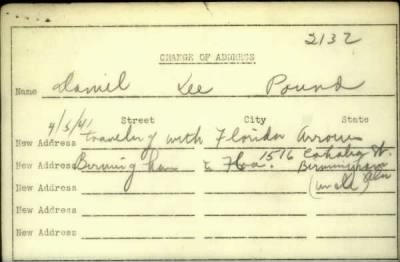 2132
CHANGE OF ADDRESS
Name Daniel Lee Pound
4/5/41 Street City State
New Address traveling with Florida Arrow
New Address Birmingham & Fla. 1516 St. Birmingham
New Address
New Address
New Address
New Address